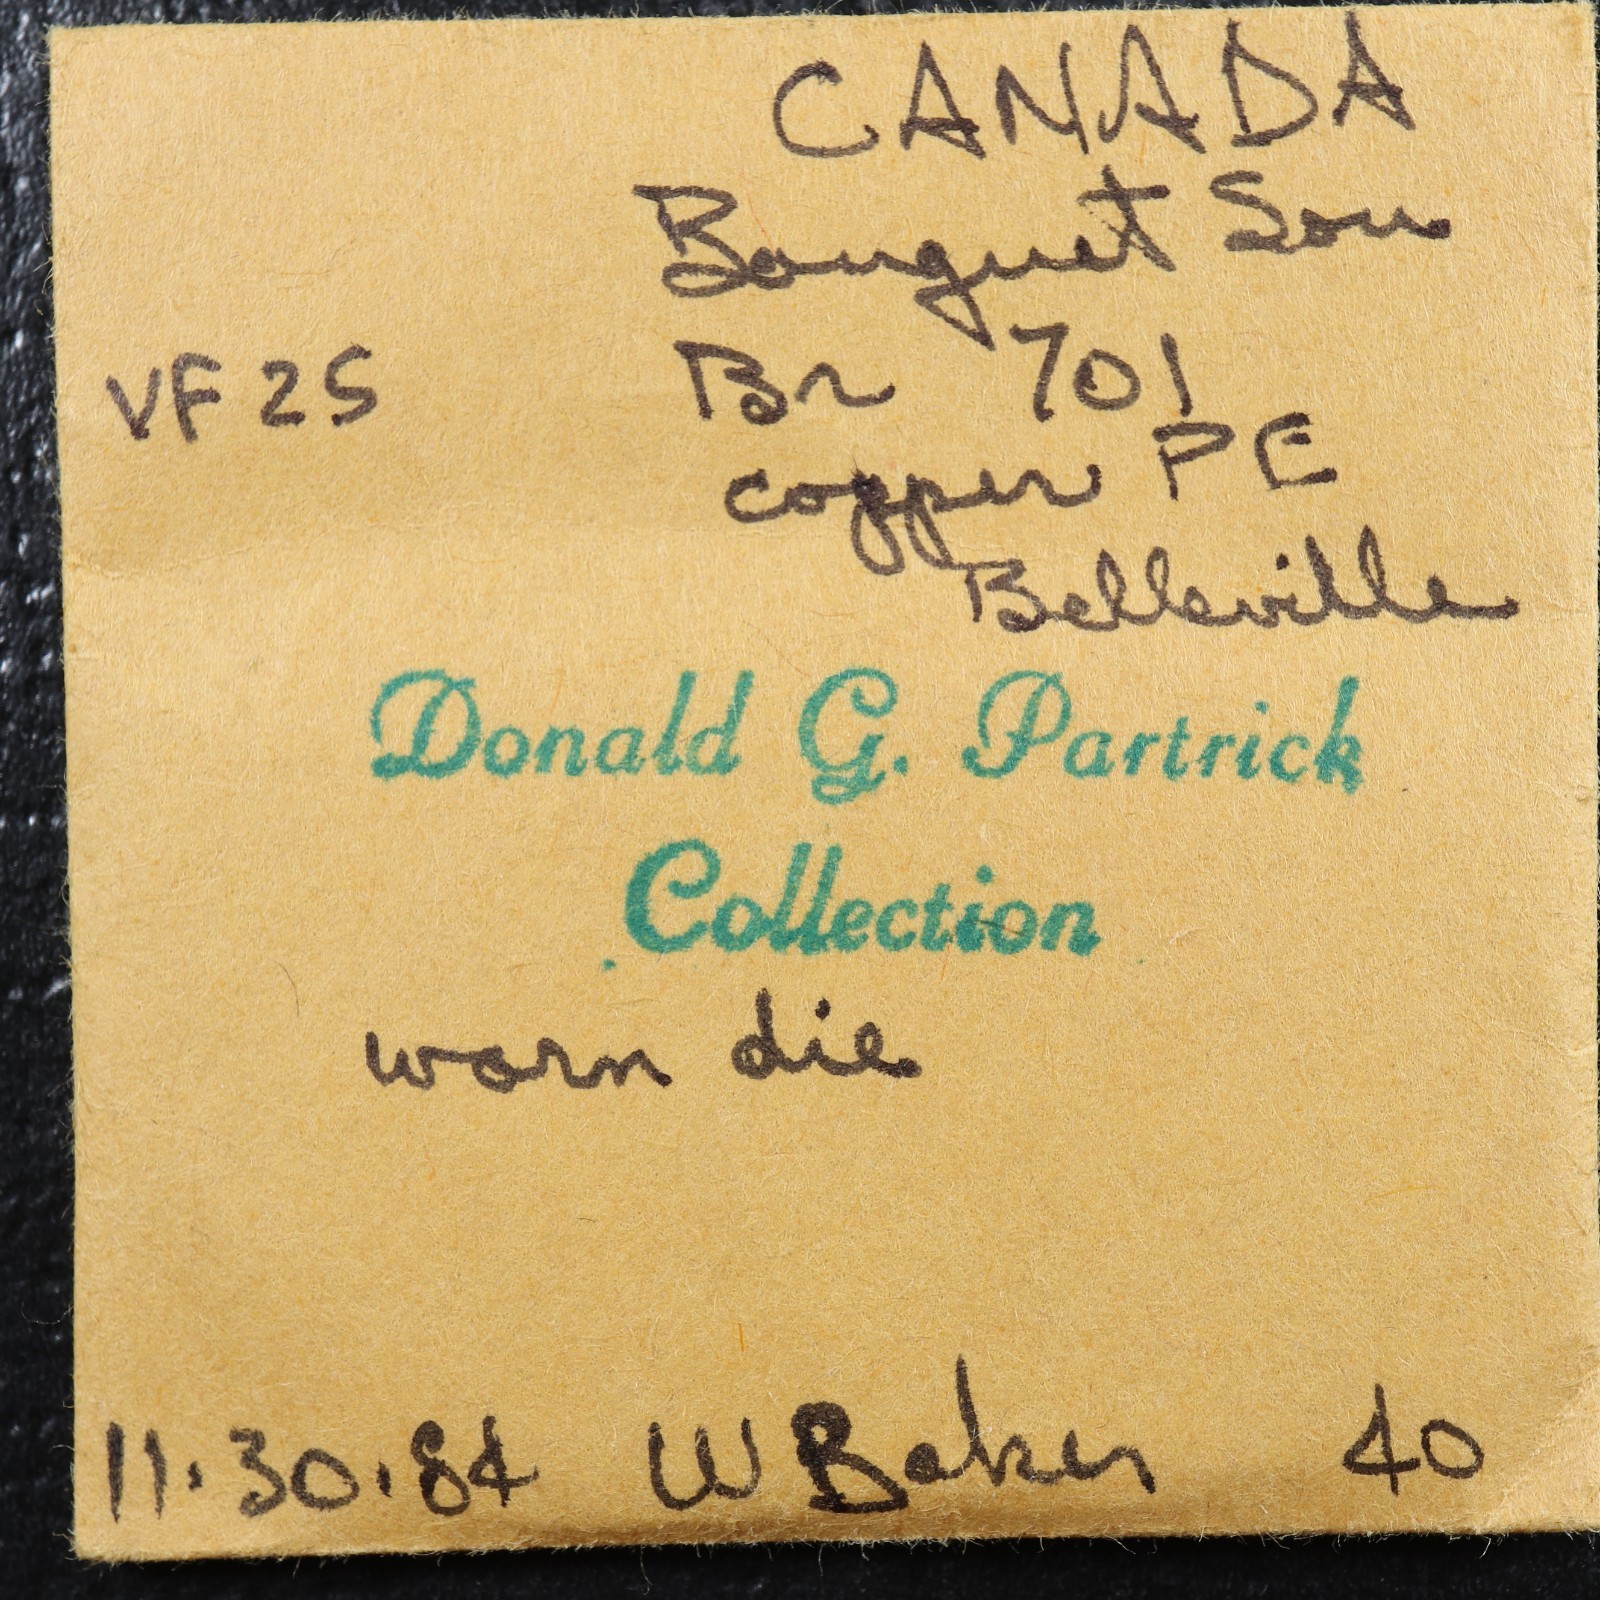 CANADA
Bouquet Sou
VF 25 Br 701
copper PE
Belleville
Donald G. Partrick
Collection
worn die
11.30.84 W Baker 40